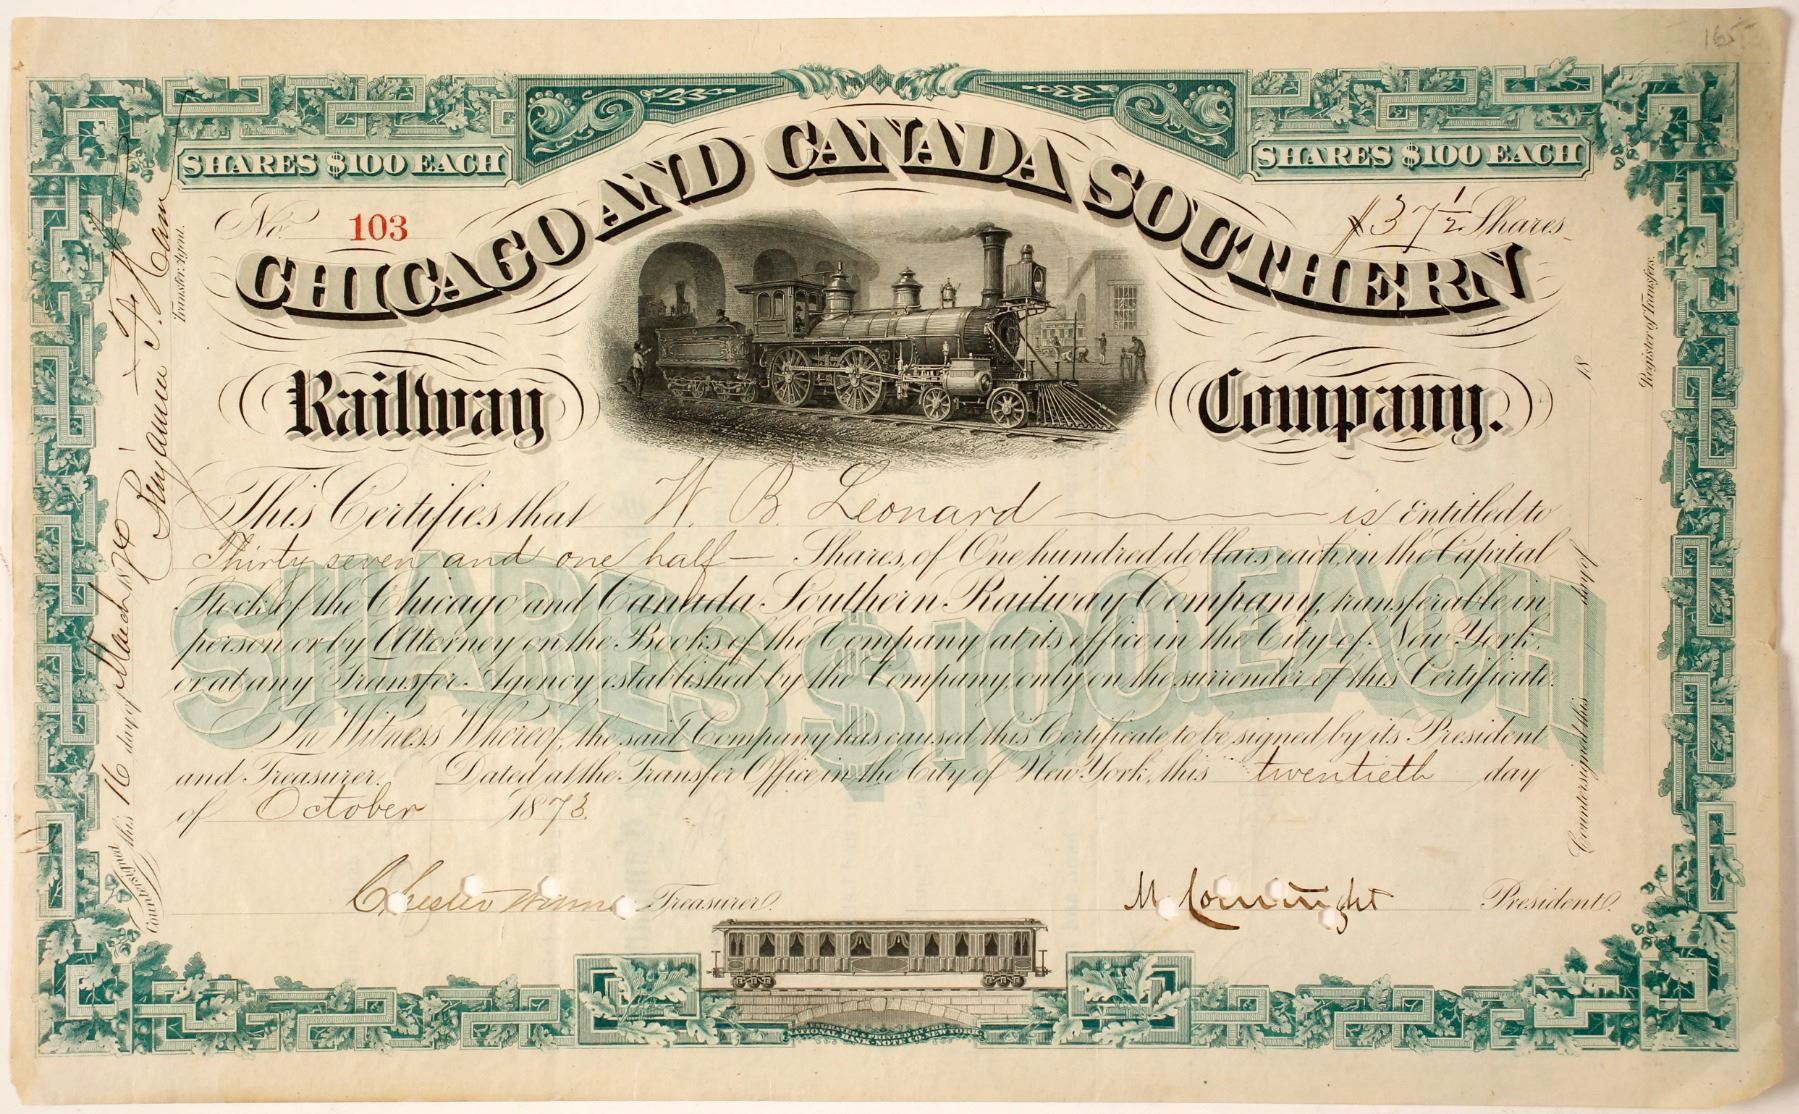 165
SHARES $100 EACH
SHARES $100 EACH
No. 103
$37 1/2 Shares
CHICAGO AND CANADA SOUTHERN
Railway Company.
This Certifies that W. B. Leonard is Entitled to
Thirty seven and one half Shares, of One hundred dollars each, in the Capital
Stock of the Chicago and Canada Southern Railway Company, transferable in
person or by Attorney on the Books of the Company at its office in the City of New York
or at any Transfer Agency established by the Company, only on the surrender of this Certificate.
In Witness Whereof, the said Company has caused this Certificate to be signed by its President
and Treasurer. Dated at the Transfer Office in the City of New York, this twentieth day
of October 1873.
SHARES $100. EACH
Chester Treasurer.
M. President.
Countersigned this 16 day of March 1874
Transfer Agent.
Countersigned this day of 18
Register of Transfers.
ENGRAVED & PRINTED BY THE
NATIONAL BANK-NOTE CO. NEW YORK